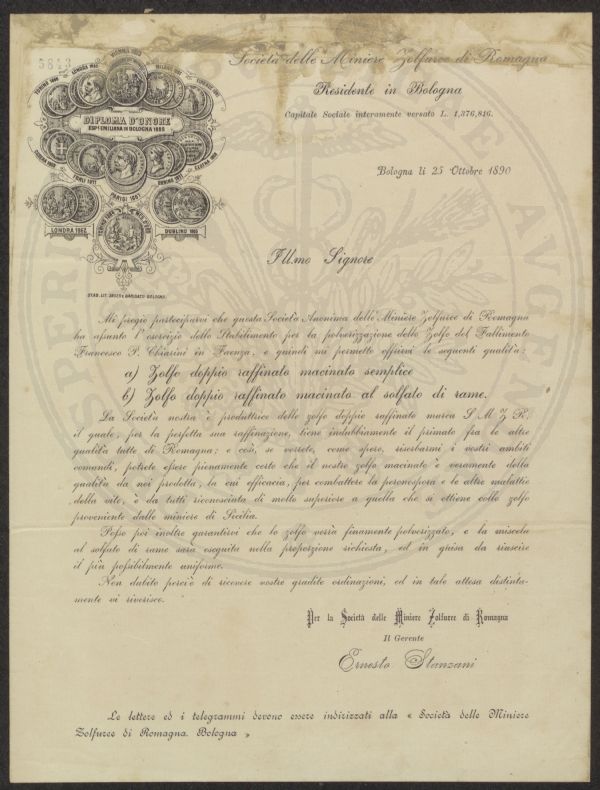 5843
Società delle Miniere Zolfuree di Romagna
Residente in Bologna
Capitale Sociale interamente versato L. 1,376,816.
DIPLOMA D'ONORE
ESPne EMILIANA IN BOLOGNA 1888
FORLI 1871
PARIGI 1867
LONDRA 1862
DUBLINO 1865
Bologna li 25 Ottobre 1890
Illmo Signore
Mi pregio parteciparvi che questa Società Anonima delle Miniere Zolfuree di Romagna
ha assunto l'esercizio dello Stabilimento per la polverizzazione dello Zolfo del Fallimento
Francesco P. Chiarini in Faenza, e quindi mi permetto offrirvi le seguenti qualità:
a) Zolfo doppio raffinato macinato semplice
b) Zolfo doppio raffinato macinato al solfato di rame.
La Società nostra è produttrice dello zolfo doppio raffinato marca S. M. Z. R.
il quale, per la perfetta sua raffinazione, tiene indubbiamente il primato fra le altre
qualità tutte di Romagna; e così, se vorrete, come spero, riserbarmi i vostri ambiti
comandi, potrete essere pienamente certo che il nostro zolfo macinato è veramente della
qualità da noi prodotta, la cui efficacia, per combattere la peronospora e le altre malattie
della vite, è da tutti riconosciuta di molto superiore a quella che si ottiene collo zolfo
proveniente dalle miniere di Sicilia.
Posso poi inoltre garantirvi che lo zolfo verrà finamente polverizzato, e la miscela
al solfato di rame sarà eseguita nella proporzione richiesta, ed in guisa da riuscire
il più possibilmente uniforme.
Non dubito perciò di ricevere vostre gradite ordinazioni, ed in tale attesa distinta-
mente vi riverisco.
Per la Società delle Miniere Zolfuree di Romagna
Il Gerente
Ernesto Stanzani
Le lettere ed i telegrammi devono essere indirizzati alla « Società delle Miniere
Zolfuree di Romagna. Bologna »